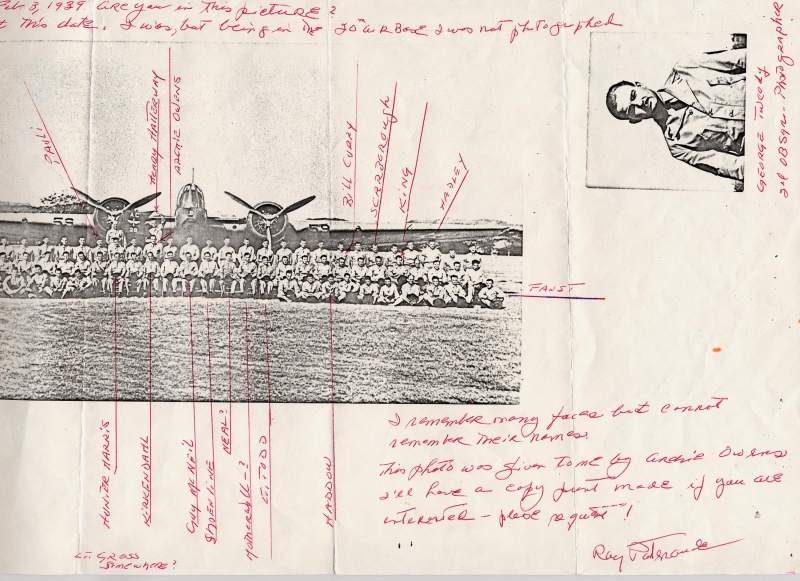 Feb 3, 1939 are you in this picture?
t this date. I was, but being in the 20th Air Base I was not photographed
PAULI
HENRY HATTERWAY
ARCHIE OWENS
BILL CURRY
SCARBOROUGH
KING
HADLEY
GEORGE TWEEDY
2nd OB Sqn - Photographer
59
59
FAUST
HUNTER HARRIS
KIRKENDAHL
GUY McNEIL
SHOERLINE
NEAL?
MOTHERALL-?
LT. TODD
MADDOW
LT. GROSS
SOMEWHERE?
I remember many faces but cannot
remember their names.
This photo was given to me by Archie Owens
I'll have a copy print made if you are
interested - please request!
Ray